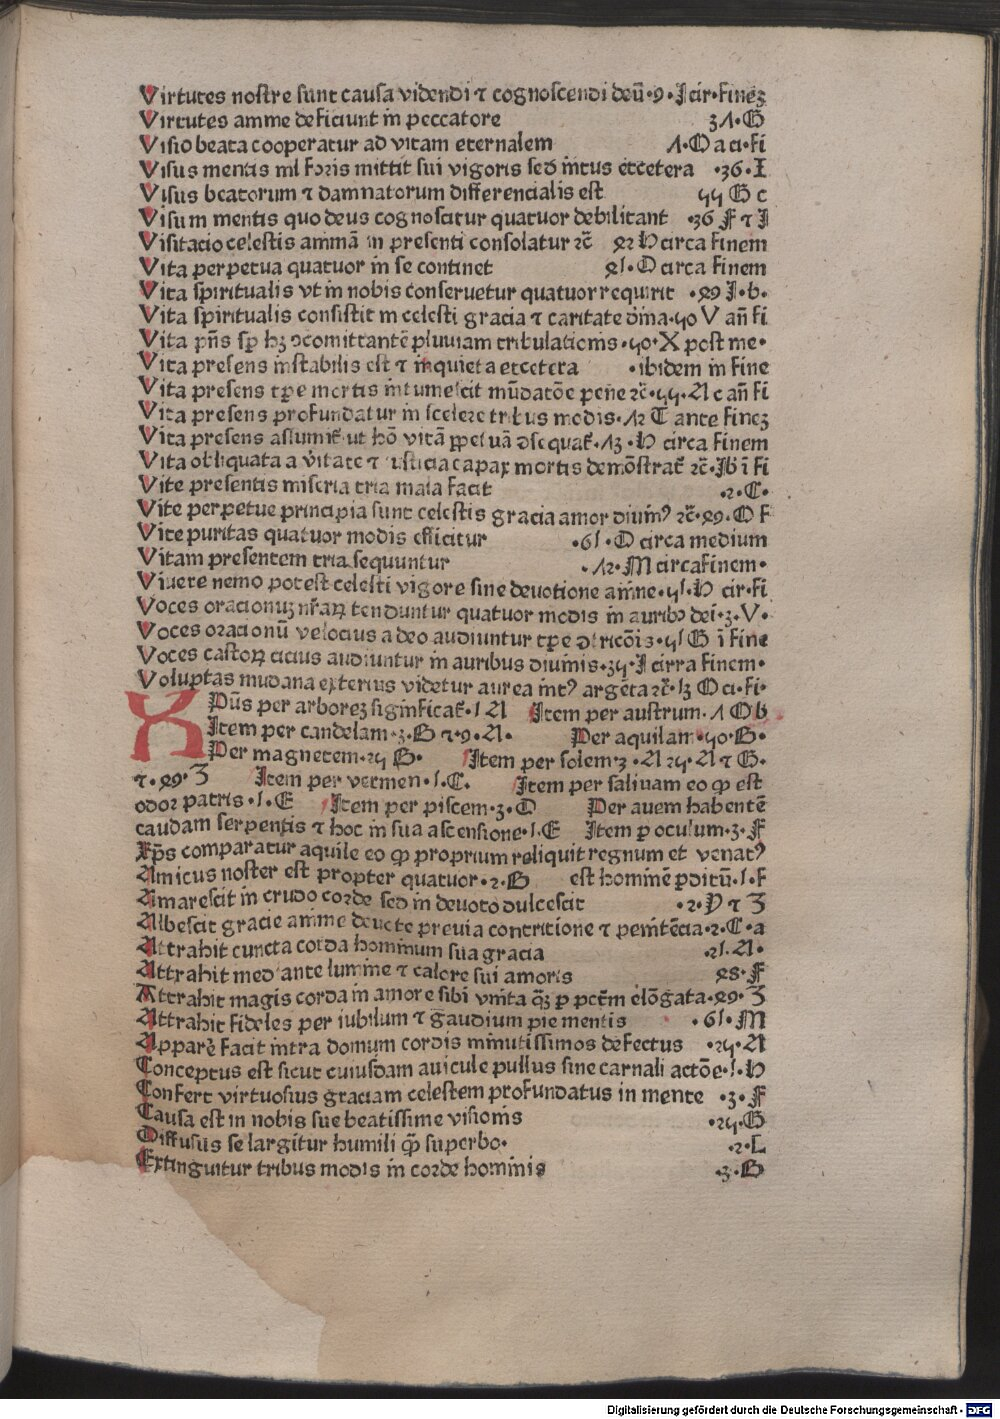 Virtutes nostre sunt causa videndi ⁊ cognoscendi deū·9·J cir·fineʒ
Virtutes amme deficiunt in peccatore 31·G
Visio beata cooperatur ad vitam eternalem 1·O a ci·fi
Visus mentis nil foris mittit sui vigoris sed intus etcetera ·36·I
Visus beatorum ⁊ damnatorum differencialis est 55 G c
Visum mentis quo deus cognoscitur quatuor debilitant ·36 F ⁊ J
Visitacio celestis ammā in presenti consolatur ⁊c̄ 82 H circa finem
Vita perpetua quatuor in se continet 81·O circa finem
Vita spiritualis vt in nobis conseruetur quatuor requirit ·89 J·b·
Vita spiritualis consistit in celesti gracia ⁊ caritate dīna·50 V an̄ fi
Vita pn̄s sp̄ hʒ ↄcomittantē pluuiam tribulationis·50·X post me·
Vita presens instabilis est ⁊ inquieta etcetera ·ibidem in fine
Vita presens tꝑe mortis intumescit mūdatōe pene ⁊c̄·55·A c an̄ fi
Vita presens profundatur in scelere tribus modis·12 T ante fineʒ
Vita presens assumit̄ ut hō vitā ꝑpetuā ↄsequat̄·13·H circa finem
Vita obliquata a v̄itate ⁊ iusticia capax mortis demōstrat̄ ⁊c̄·Jb ī fi
Vite presentis miseria tria mala facit ·2·C·
Vite perpetue principia sunt celestis gracia amor diuinꝰ ⁊c̄·89·O F
Vite puritas quatuor modis efficitur ·61·O circa medium
Vitam presentem tria sequuntur ·12·M circa finem·
Viuere nemo potest celesti vigore sine deuotione amn̄e·51·H cir·fi
Voces oracionuʒ nr̄aꝝ tenduntur quatuor modis in auribꝰ dei·3·V·
Voces oracionū velocius a deo audiuntur tꝑe ↄtricōis·51 G ī fine
Voces castoꝝ cicius audiuntur in auribus diuinis·35·J cirra finem·
Voluptas mūdana exterius videtur aurea intꝰ argēta ⁊c̄·13 O ci·fi·
XPūs per arboreʒ significat̄·1 A Item per austrum·1 O b
Item per candelam·3·G ⁊·9·A· Per aquilam·50·G·
Per magnetem·25 G· Item per solem·3·A 25·A ⁊ G·
⁊·89·Z Item per vermen·1·C· Item per saliuam eo ꝙ est
odor patris·1·E Item per piscem·3·O Per auem habentē
caudam serpentis ⁊ hoc in sua ascensione·1·E Item ꝑ oculum·3·F
Xp̄s comparatur aquile eo ꝙ proprium reliquit regnum et venatꝰ
Amicus noster est propter quatuor·2·G est hominē ꝑditū·1·F
Amarescit in crudo corde sed in deuoto dulcescit ·2·Y ⁊ Z
Albescit gracie amme deuote preuia contritione ⁊ penitēcia·2·C·a
Attrahit cuncta corda hominum sua gracia ·21·A·
Attrahit mediante lumine ⁊ calore sui amoris 88·F
Attrahit magis corda in amore sibi vnita q̄ʒ ꝑ pctm̄ elōgata·89·Z
Attrahit fideles per iubilum ⁊ gaudium pie mentis ·61·M
Apparē facit intra domum cordis minutissimos defectus ·25·A
Conceptus est sicut cuiusdam auicule pullus sine carnali actōe·1·H
Confert virtuosius graciam celestem profundatus in mente ·3·F
Causa est in nobis sue beatissime visionis ·25·G
Diffusus se largitur humili q̄ superbo· ·2·L
Extinguitur tribus modis in corde hominis ·3·G
Digitalisierung gefördert durch die Deutsche Forschungsgemeinschaft - DFG